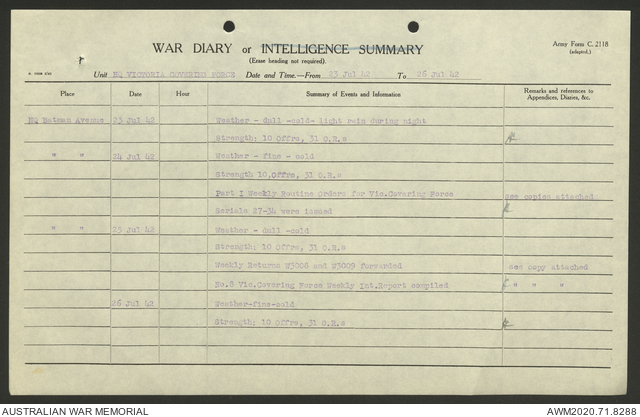 WAR DIARY or INTELLIGENCE SUMMARY
(Erase heading not required).
Army Form C. 2118
(adapted.)
Unit HQ VICTORIA COVERING FORCE Date and Time.—From 23 Jul 42 To 26 Jul 42
Place Date Hour Summary of Events and Information Remarks and references to
Appendices, Diaries, &c.
HQ Batman Avenue 23 Jul 42 Weather - dull -cold- light rain during night
Strength: 10 Offrs, 31 O.R.s
" " 24 Jul 42 Weather - fine - cold
Strength 10.Offrs, 31 O.R.s
Part I Weekly Routine Orders for Vic.Covering Force see copies attached
Serials 27-34 were issued
" " 25 Jul 42 Weather - dull -cold
Strength: 10 Offrs, 31 O.R.s
Weekly Returns W3008 and W3009 forwarded see copy attached
No.8 Vic.Covering Force Weekly Int.Report compiled " " "
26 Jul 42 Weather-fine-cold
Strength: 10 Offrs, 31 O.R.s
AUSTRALIAN WAR MEMORIAL AWM2020.71.8288